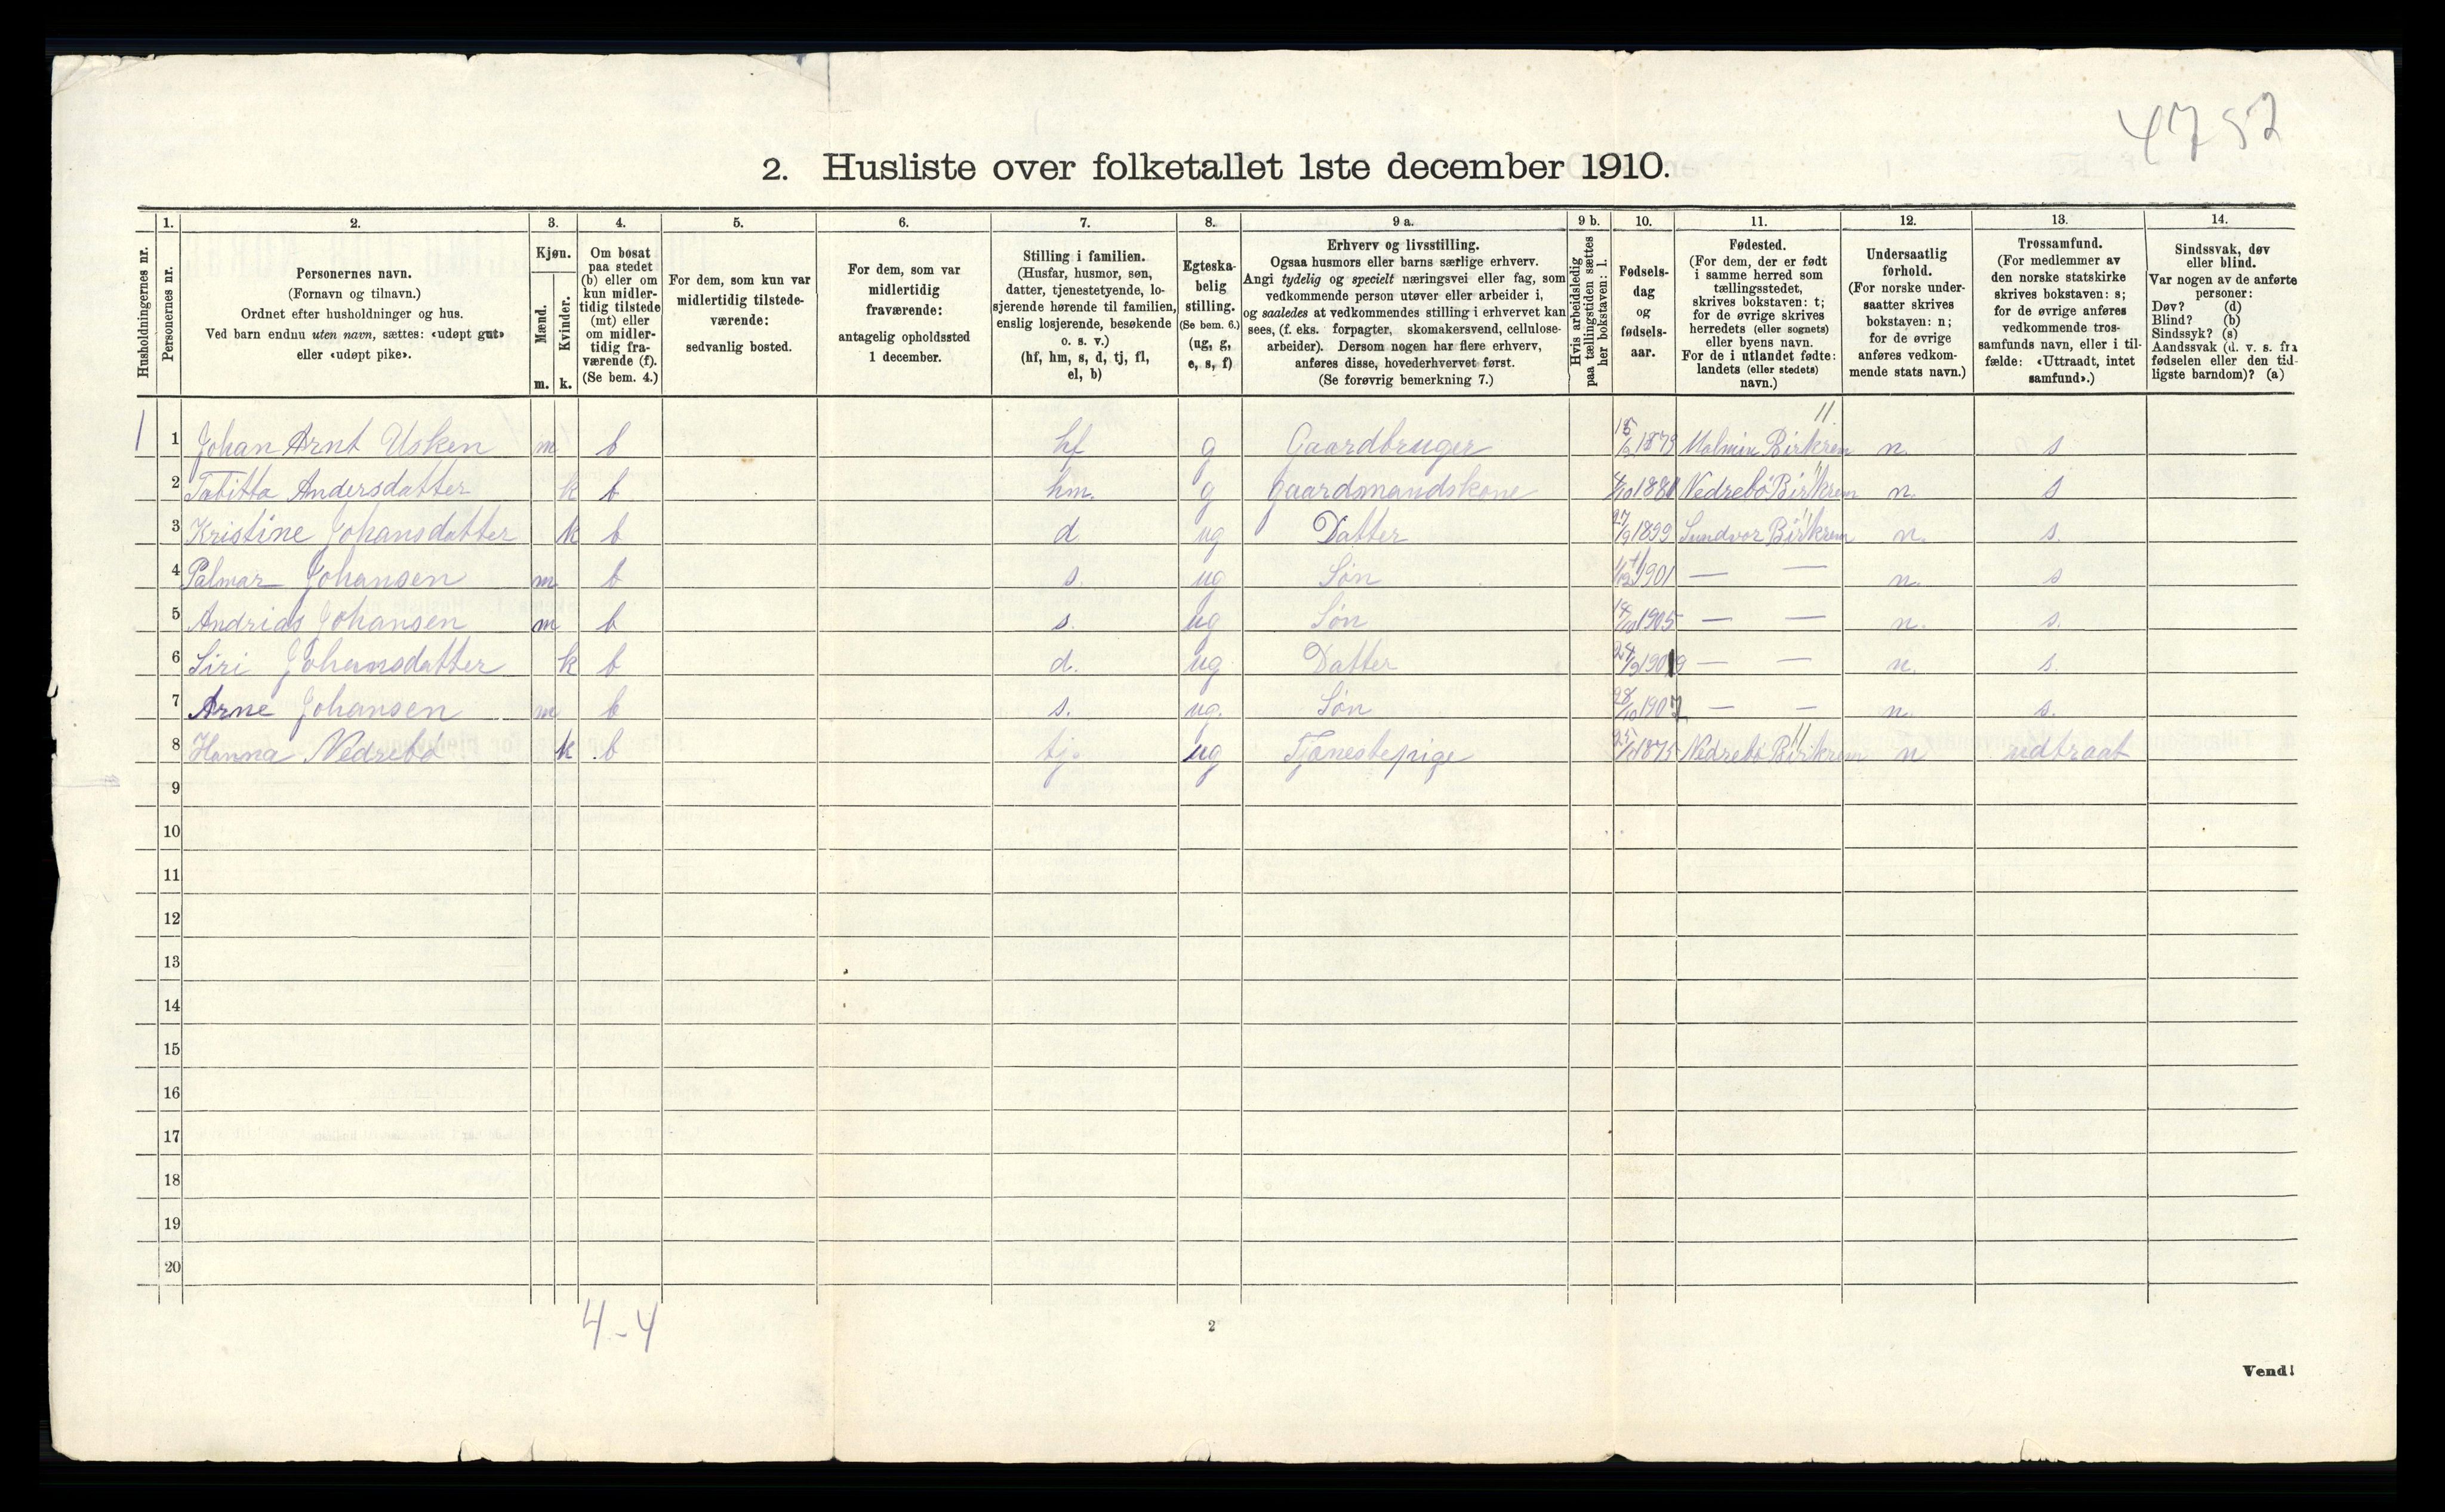 4752
2. Husliste over folketallet 1ste december 1910.
Husholdningernes nr.
1. Personernes nr.
2. Personernes navn.
(Fornavn og tilnavn.)
Ordnet efter husholdninger og hus.
Ved barn endnu uten navn, sættes: «udøpt gut»
eller «udøpt pike».
3. Kjøn.
Mænd. m.
Kvinder. k.
4. Om bosat
paa stedet
(b) eller om
kun midler-
tidig tilstede
(mt) eller
om midler-
tidig fra-
værende (f).
(Se bem. 4.)
5. For dem, som kun var
midlertidig tilstede-
værende:
sedvanlig bosted.
6. For dem, som var
midlertidig
fraværende:
antagelig opholdssted
1 december.
7. Stilling i familien.
(Husfar, husmor, søn,
datter, tjenestetyende, lo-
sjerende hørende til familien,
enslig losjerende, besøkende
o. s. v.)
(hf, hm, s, d, tj, fl,
el, b)
8. Egteska-
belig
stilling.
(Se bem. 6.)
(ug, g,
e, s, f)
9 a. Erhverv og livsstilling.
Ogsaa husmors eller barns særlige erhverv.
Angi tydelig og specielt næringsvei eller fag, som
vedkommende person utøver eller arbeider i,
og saaledes at vedkommendes stilling i erhvervet kan
sees, (f. eks. forpagter, skomakersvend, cellulose-
arbeider). Dersom nogen har flere erhverv,
anføres disse, hovederhvervet først.
(Se forøvrig bemerkning 7.)
9 b. Hvis arbeidsledig
paa tællingstiden sættes
her bokstaven: l.
10. Fødsels-
dag
og
fødsels-
aar.
11. Fødested.
(For dem, der er født
i samme herred som
tællingsstedet,
skrives bokstaven: t;
for de øvrige skrives
herredets (eller sognets)
eller byens navn.
For de i utlandet fødte:
landets (eller stedets)
navn.)
12. Undersaatlig
forhold.
(For norske under-
saatter skrives
bokstaven: n;
for de øvrige
anføres vedkom-
mende stats navn.)
13. Trossamfund.
(For medlemmer av
den norske statskirke
skrives bokstaven: s;
for de øvrige anføres
vedkommende tros-
samfunds navn, eller i til-
fælde: «Uttraadt, intet
samfund».)
14. Sindssvak, døv
eller blind.
Var nogen av de anførte
personer:
Døv? (d)
Blind? (b)
Sindssyk? (s)
Aandssvak (d. v. s. fra
fødselen eller den tid-
ligste barndom)? (a)
1 1 Johan Arnt Usken m b hf g Gaardbruger 1879 Malmin Birkrem n. s
2 Tabitta Andersdatter k b hm. g Gaardsmandskone 1881 Nedrebö Birkrem n. s
3 Kristine Johansdatter k b d ug Datter 27/9 1899 Sundvor Birkrem n. s.
4 Palmar Johansen m b s. ug Søn 1901 — — n. s
5 Andrias Johansen m b s. ug Søn 14/10 1905 — — n. s.
6 Siri Johansdatter k b d. ug. Datter 24/9 1909 — — n. s.
7 Arne Johansen m b s. ug. Søn 28/10 1907 — — n. s.
8 Hanna Nedrebö k b tj. ug Tjenestepige 1875 Nedrebö Birkrem n udtraat
9
10
11
12
13
14
15
16
17
18
19
20
4-4
2
Vend!